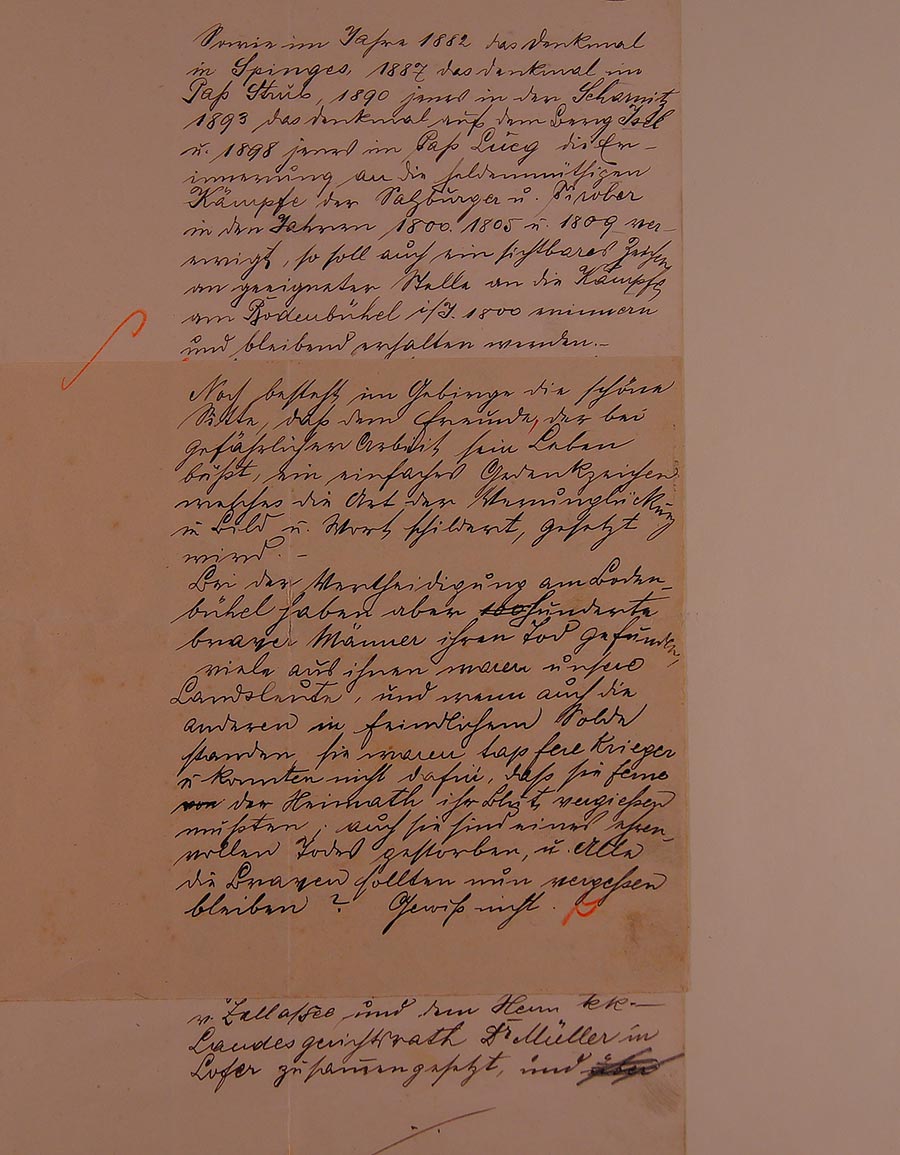 Sowie im Jahre 1882 das Denkmal
in Spinges, 1887 das denkmal im
Paß Strub, 1890 jenes in der Scharnitz
1893 das denkmal auf dem Berg Isel
u. 1898 jenes im Paß Lueg die Er-
innerung an die heldenmüthigen
Kämpfe der Salzburger u. Tiroler
in den Jahren 1800. 1805 u. 1809 ver-
ewigt, so soll auch ein sichtbares Zeichen
an geeigneter Stelle an die Kämpfe
am Bodenbühel i/J. 1800 erinnern
und bleibend erhalten werden.-
Noch besteht im Gebirge die schöne
Sitte, daß dem Freunde, der bei
gefährlicher Arbeit sein Leben
büßt, ein einfaches Gedenkzeichen
welches die Art der Verunglückung
in Bild u. Wort schildert, gesetzt
wird. -
Bei der Vertheidigung am Boden-
bühel haben aber 100 hunderte
braver Männer ihren Tod gefunden,
viele aus ihnen waren unsere
Landsleute, und wenn auch die
anderen in feindlichem Solde
standen, sie waren tapfere Krieger
u konnten nicht dafür, daß sie ferne
von der Heimath ihr Blut vergießen
mußten; auch sie sind eines ehren-
vollen Todes gestorben, u. Alle
die Braven sollten nun vergessen
bleiben? Gewiß nicht.
v. Zell a/See und dem Herrn kk-
Landesgerichtsrath Dr Müller in
Lofer zusammengesetzt, und über